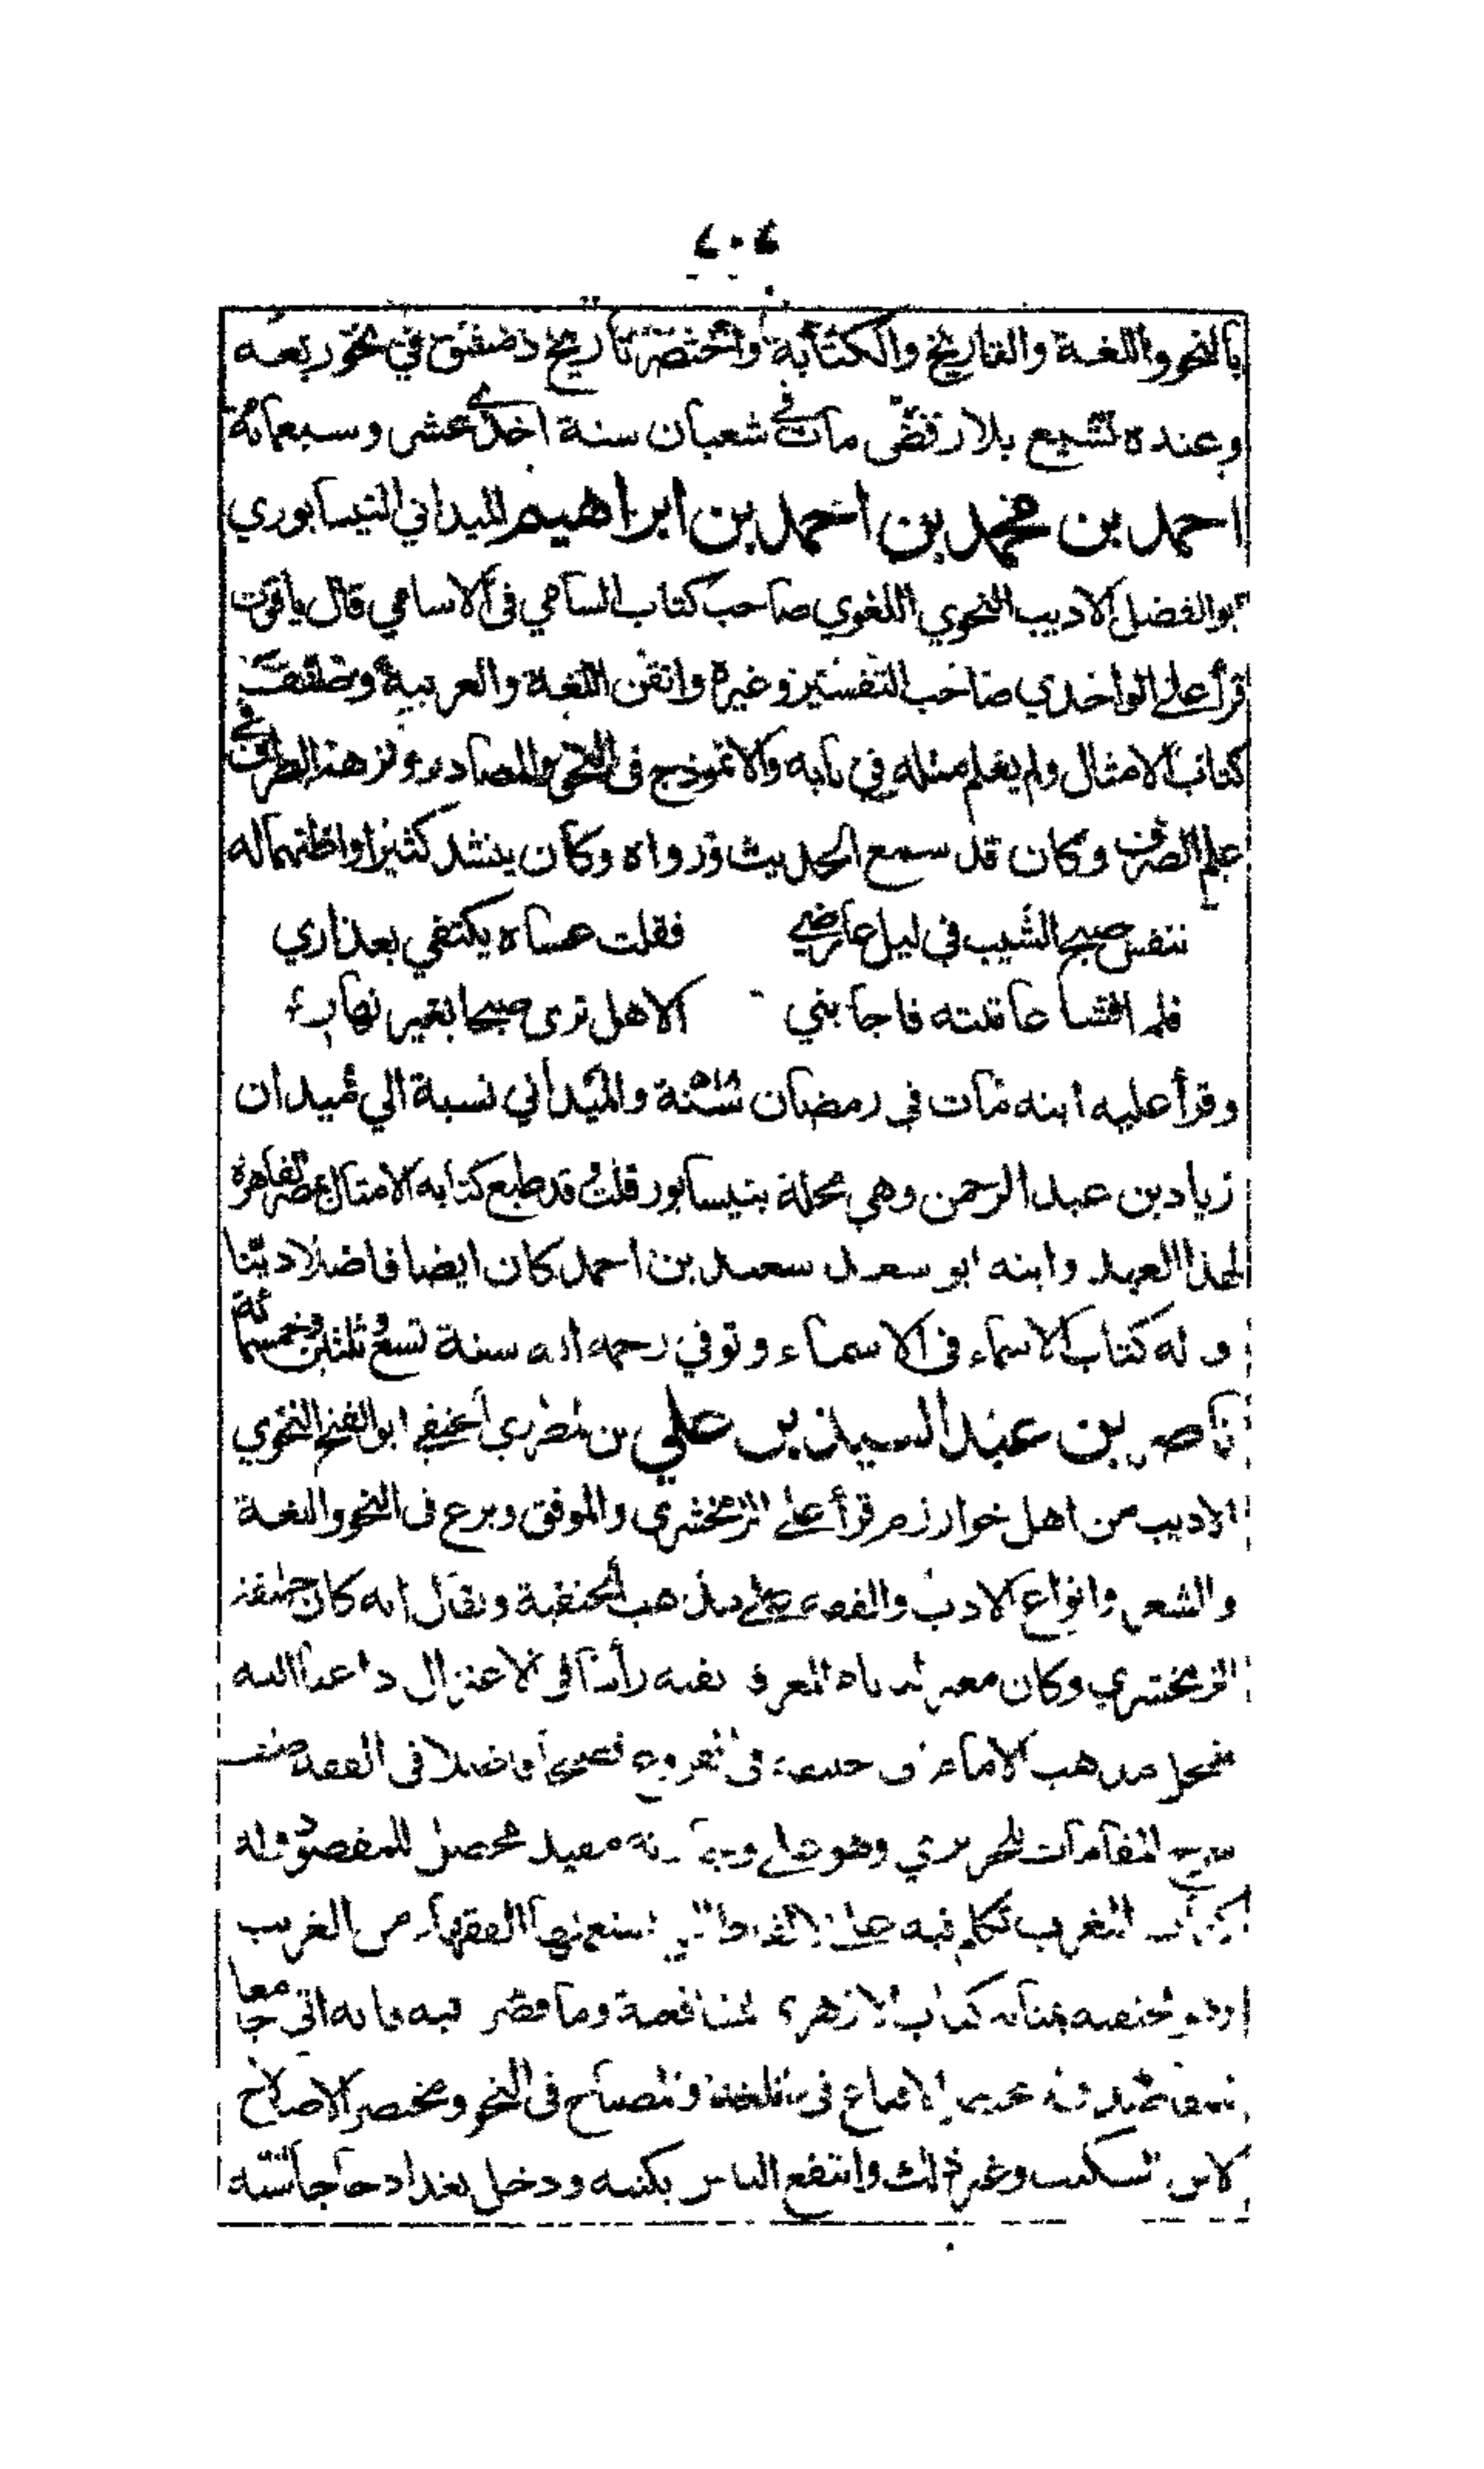 بالنحو واللغة والتاريخ والكتابة واختصر تاريخ دمشق في نحو ربعه
وعنده تشيع بلا رفض مات في شعبان سنة احدى عشر وسبعمائة
احمد بن محمد بن احمد بن ابراهيم الميداني النيسابوري
بوالفضل الاديب النحوي اللغوي صاحب كتاب السامي في الاسامي قال ياقوت
قرأ على الواحدي صاحب التفسير وغيره واتقن اللغة والعربية وصنف
كتاب الامثال ولم يعلم مثله في بابه والانموذج في النحو والمصادر ونزهة الطرف في
علم الصرف وكان قد سمع الحديث ورواه وكان ينشد كثيرا واظنهما له
تنفس صبح الشيب في ليل عارضي فقلت عساه يكتفي بعذاري
فلما فشا عاتبته فاجابني الا هل ترى صبحا بغير نهار
وقرأ عليه ابنه مات في رمضان سنة والميداني نسبة الي ميدان
زياد بن عبد الرحمن وهي محلة بنيسابور قلت قد طبع كتابه الامثال بمصر القاهرة
لهذا العهد وابنه ابو سعد سعيد بن احمد كان ايضا فاضلا دينا
وله كتاب الاسماء في الاسماء وتوفي رحمه الله سنة تسع وثلثين وخمسمائة
ناصر بن عبد السيد بن علي بن مطرزي الحنفي ابو الفتح النحوي
الاديب من اهل خوارزم قرأ على الزمخشري والموفق وبرع في النحو واللغة
والشعر وانواع الادب والفقه على مذهب الحنفية ويقال انه كان خليفة
الزمخشري وكان معه رأسا في الاعتزال داعيا اليه
ينتحل مذهب الامام ابي حنيفة في الفروع فصيحا فاضلا في الفقه صنف
شرح المقامات للحريري وهو على وجازته مفيد محصل للمقصود وله
كتاب المغرب تكلم فيه على الالفاظ التي الفقهاء من الغريب
وهو للحنفية بمثابة كتاب الازهري للشافعية وما قصر فيه فانه اتى جامعا
الاقناع في اللغة والمصباح في النحو ومختصر الاصلاح
لابن السكيت وغير ذلك وانتفع الناس بكتبه ودخل بغداد حاجا سنة